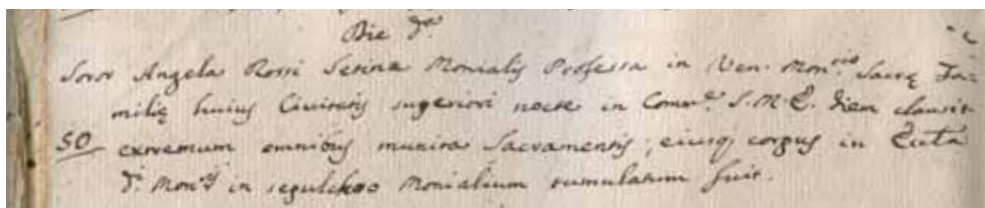 Die d.a
Soror Angela Rossi Setina Monialis Professa in Ven. Mon.rio Sacrę Fa-
milię huius Civitatis superiori nocte in Comm.e S. M. E. diem clausit
50 extremum omnibus munita Sacramentis; eiusq corpus in Eccta
d.i Mon.ij in sepulchro Monialium tumulatum fuit.